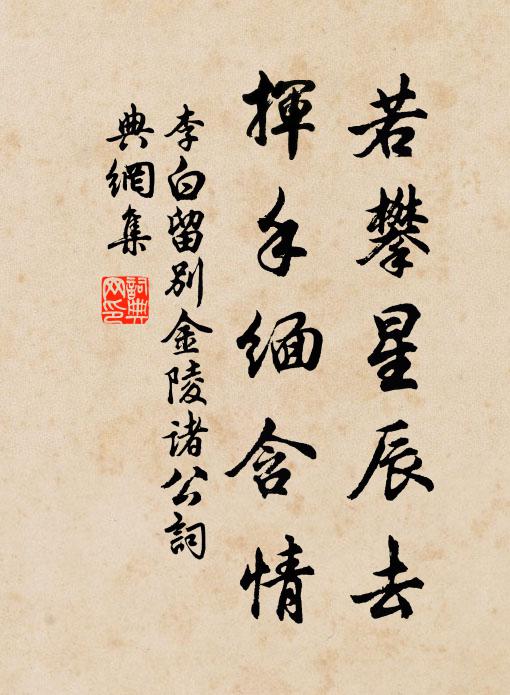 若攀星辰去
揮手緬含情
李白留別金陵诸公詞
典網集
詞典
网印